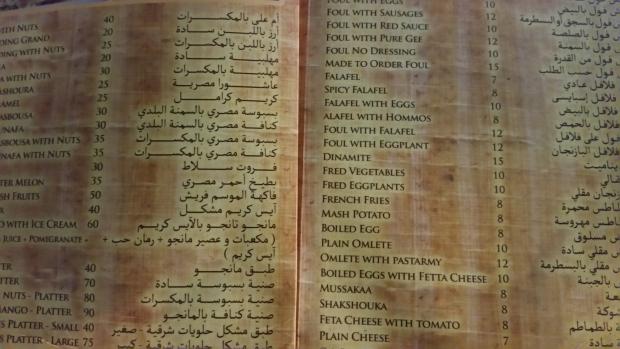 NUTS 40 أم على بالمكسرات
DING GRAND 20 أرز باللبن سادة
DING WITH NUTS 30 أرز باللبن بالمكسرات
20 مهلبية سادة
A WITH NUTS 30 مهلبية بالمكسرات
ASHOURA 25 عاشورا مصرية
AMEL 25 كريم كرامل
BASBOUSA 30 بسبوسة مصري بالسمنة البلدي
UNAFA 30 كنافة مصري بالسمنة البلدي
SBOUSA WITH NUTS 35 بسبوسة مصري بالمكسرات
UNAFA WITH NUTS 35 كنافة مصري بالمكسرات
30 فروت سلاط
TER MELON 35 بطيخ أحمر مصري
SH FRUITS 50 فاكهة الموسم فريش
40 آيس كريم مشكل
O WITH ICE CREAM 60 مانجو تانجو بالآيس كريم
JUICE + POMIGRANATE + ( مكعبات و عصير مانجو + رمان حب +
آيس كريم )
TER 40 طبق مانجو
TTER 70 صنية بسبوسة سادة
NUTS - PLATTER 80 صنية بسبوسة بالمكسرات
MANGO - PLATTER 90 صنية كنافة بالمانجو
S PLATTER - SMALL 40 طبق مشكل حلويات شرقية - صغير
S PLATTER - LARGE 75 طبق مشكل حلويات شرقية - كبير
FOUL WITH EGGS 10 فول بالبيض
FOUL WITH SAUSAGES 12 فول بالسجق أو البسطرمة
FOUL WITH RED SAUCE 10 فول بالصلصة
FOUL WITH PURE GEF 12 فول بالسمنة
FOUL NO DRESSING 10 فول من القدرة
MADE TO ORDER FOUL 15 فول حسب الطلب
FALAFEL 7 فلافل عادي
SPICY FALAFEL 8 فلافل اسبايسى
FALAFEL WITH EGGS 10 فلافل بالبيض
ALAFEL WITH HOMMOS 8 فلافل بالحمص
FOUL WITH FALAFEL 12 فول على فلافل
FOUL WITH EGGPLANT 12 فول بالباذنجان
DINAMITE 15 ديناميت
FRED VEGETABLES 10
FRED EGGPLANTS 10 باذنجان مقلي
FRENCH FRIES 8 بطاطس محمرة
MASH POTATO 8 بطاطس مهروسة
BOILED EGG 8 بيض مسلوق
PLAIN OMLETE 8 بيض مقلي سادة
OMLETE WITH PASTARMY 12 بيض مقلي بالبسطرمة
BOILED EGGS WITH FETTA CHEESE 10 بالجبنة
MUSSAKAA 8
SHAKSHOUKA 8 شكشوكة
FETA CHEESE WITH TOMATO 8 بالطماطم
PLAIN CHEESE 7 سادة